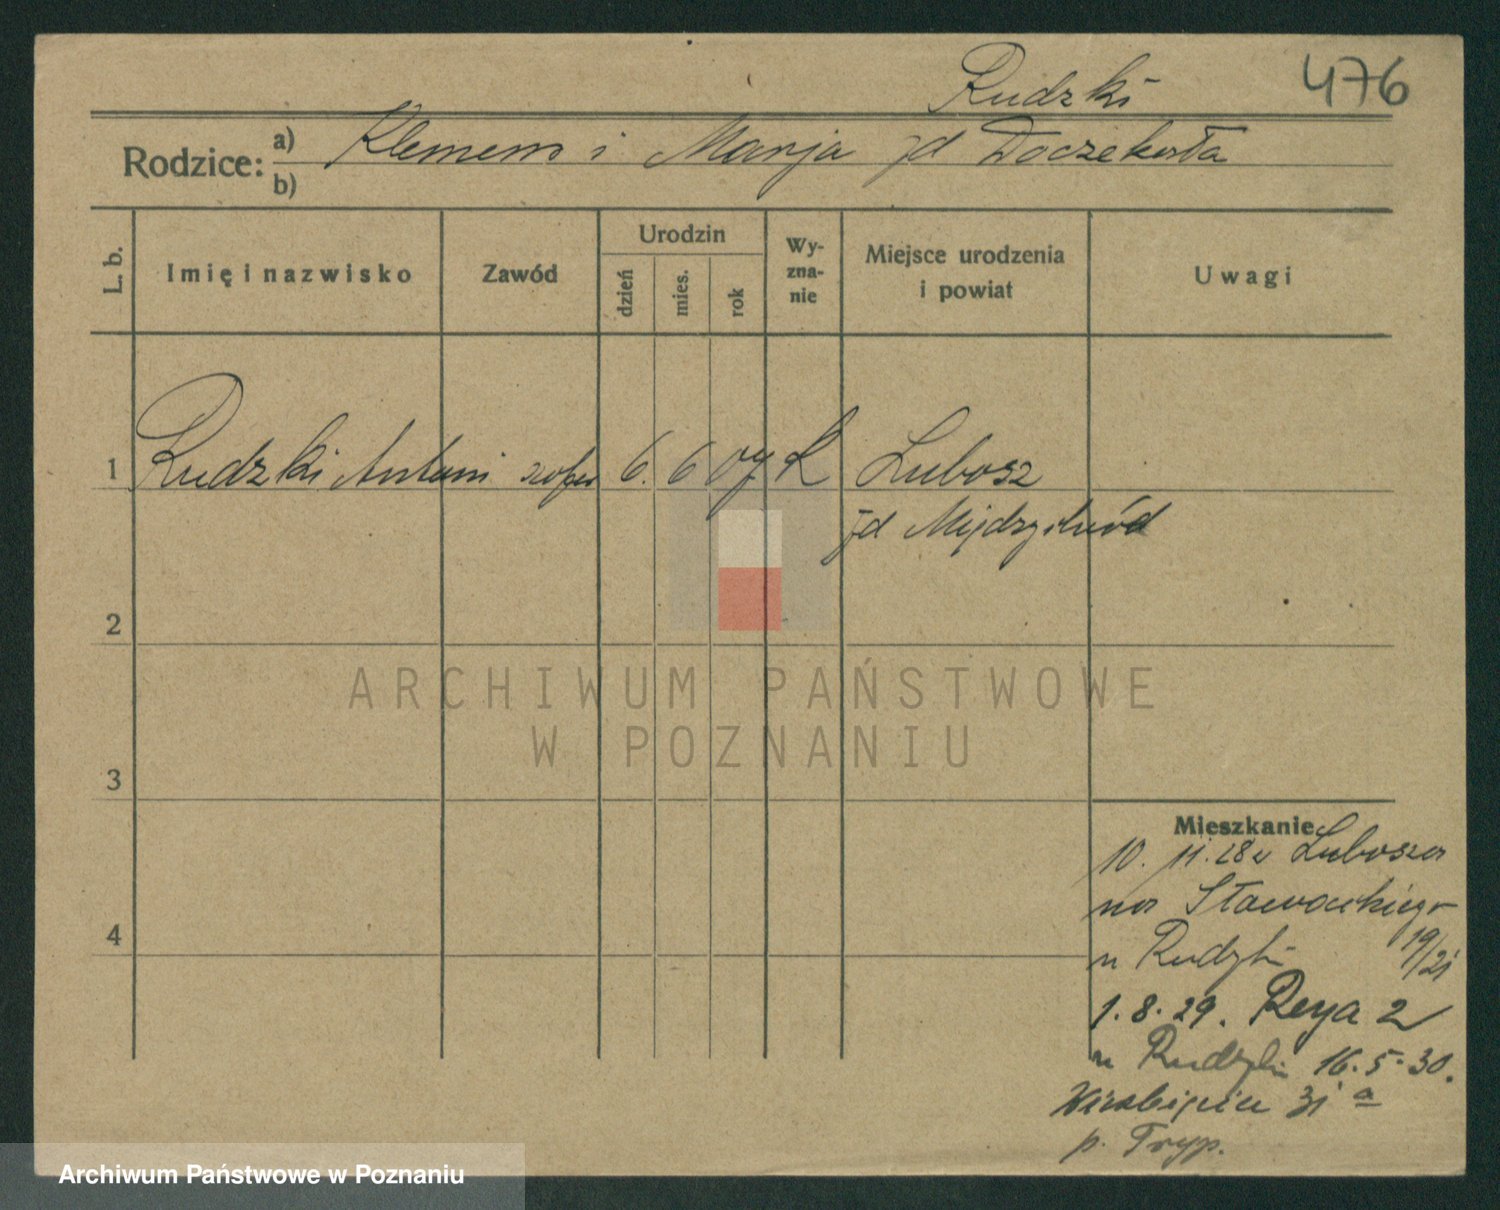 Rudzki 476
Rodzice: a) Klemens i Marja zd Doczekała
b)
L. b.
Imię i nazwisko
Zawód
Urodzin
dzień
mies.
rok
Wy-
zna-
nie
Miejsce urodzenia
i powiat
Uwagi
1 Rudzki Antoni szofer 6. 6 07 K Lubosz
pd Międzychód
2
3
4
Mieszkanie
10. 11. 28 z Lubosza
na Słowackiego
u Rudzki 19/21
1. 8. 29. Reya 2
u Rudzki 16.5.30.
Wierzbięcice 31 a
p.
ARCHIWUM PAŃSTWOWE
W POZNANIU
Archiwum Państwowe w Poznaniu